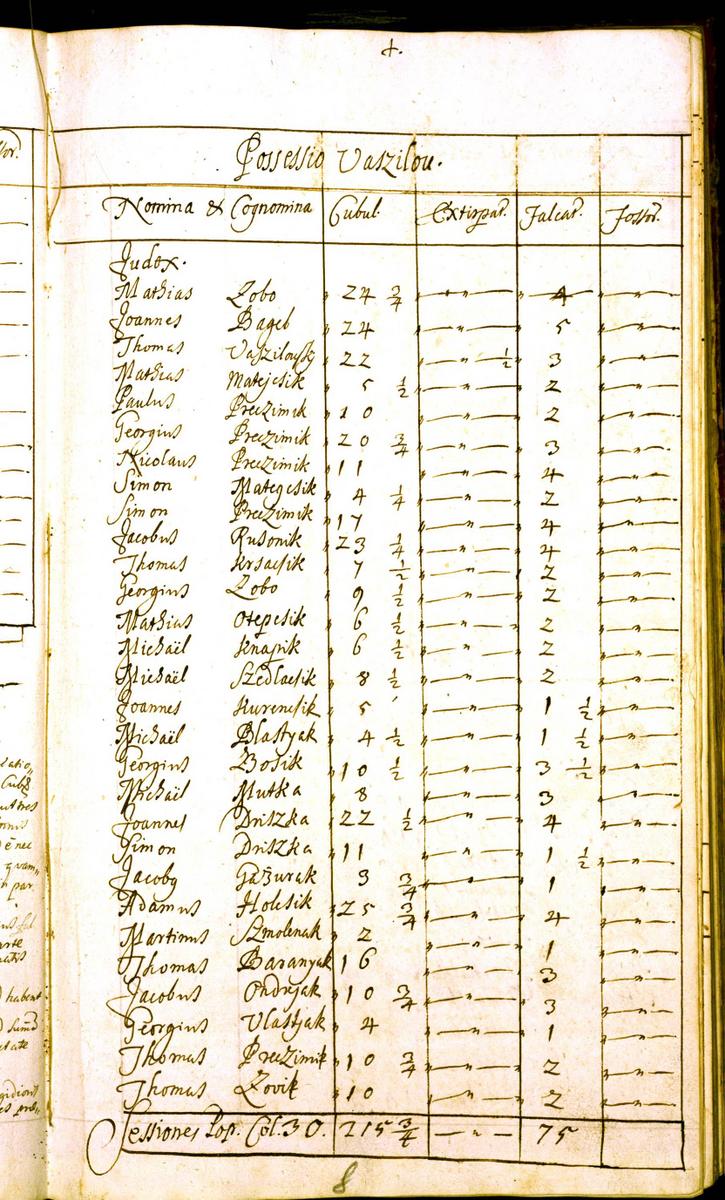 Possessio Vaszilou.
Nomina & Cognomina Cubul. Extirpat. Falcat. Fossor.
Judex.
Mathias Zobo " 24 3/4 " 4 "
Joannes Bagel " 24 " 5 "
Thomas Vaszilousky " 22 " 1/2 3 "
Mathias Matejcsik " 5 1/2 " 2 "
Paulus Preczimik " 10 " 2 "
Georgius Preczimik " 20 3/4 " 3 "
Nicolaus Preczimik " 11 " 4 "
Simon Matejcsik " 4 1/4 " 2 "
Simon Preczimik " 17 " 4 "
Jacobus Rusonik " 23 1/4 " 4 "
Thomas Krsacsik " 7 1/2 " 2 "
Georgius Zobo " 9 1/2 " 2 "
Mathias Otepcsik " 6 1/2 " 2 "
Michaël Knapik " 6 1/2 " 2 "
Michaël Szedlacsik " 8 1/2 " 2 "
Joannes Kurencsik " 5 " 1 1/2 "
Michaël Blastyak " 4 1/2 " 1 1/2 "
Georgius Bosik " 10 1/2 " 3 1/2 "
Michaël Mutka " 8 " 3 "
Joannes Driszka " 22 1/2 " 4 "
Simon Driszka " 11 " 1 1/2 "
Jacobq Gazurak " 3 3/4 " 1 "
Adamus Holcsik " 25 3/4 " 4 "
Martinus Szmolenak " 2 " 1 "
Thomas Baranyak " 16 " 3 "
Jacobus Ondrejak " 10 3/4 " 3 "
Georgius Vlastjak " 4 " 1 "
Thomas Preczimik " 10 3/4 " 2 "
Thomas Zovik " 10 " 2 "
Sessiones Pop. Col. 30. 215 3/4 " 75
8